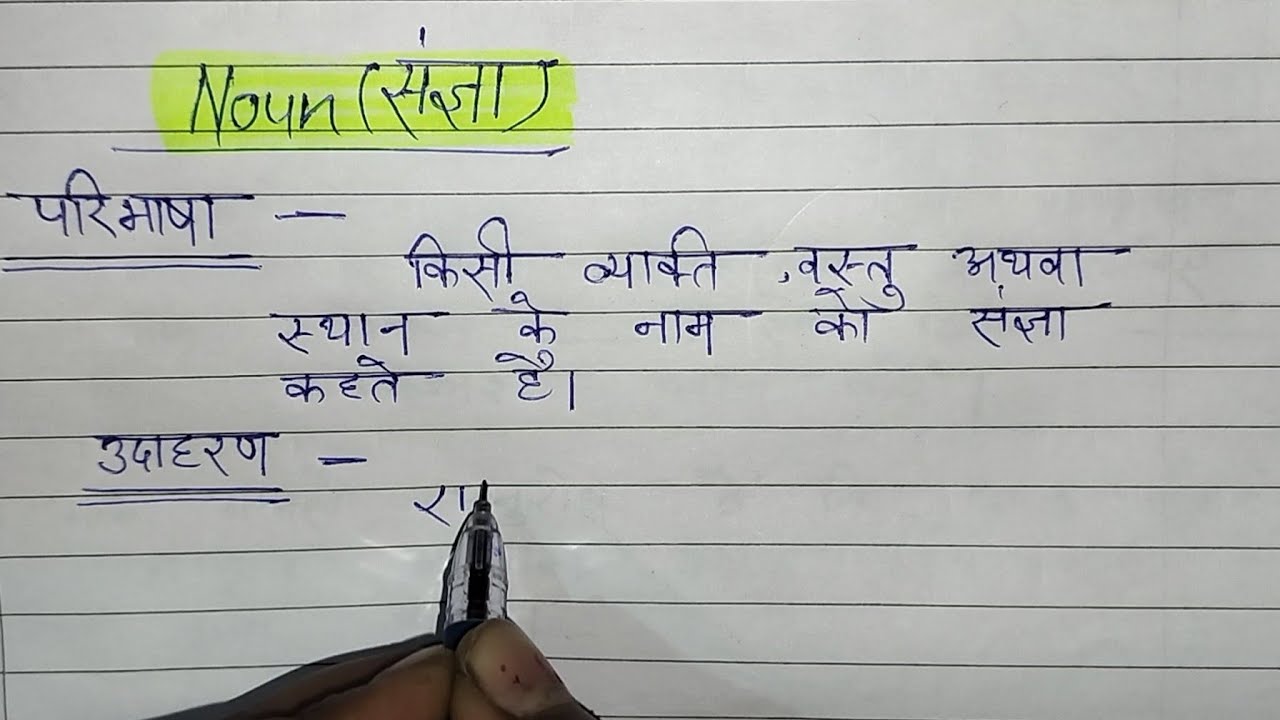 Noun (संज्ञा)
परिभाषा —
किसी व्यक्ति , वस्तु अथवा
स्थान के नाम को संज्ञा
कहते है।
उदाहरण —
रा